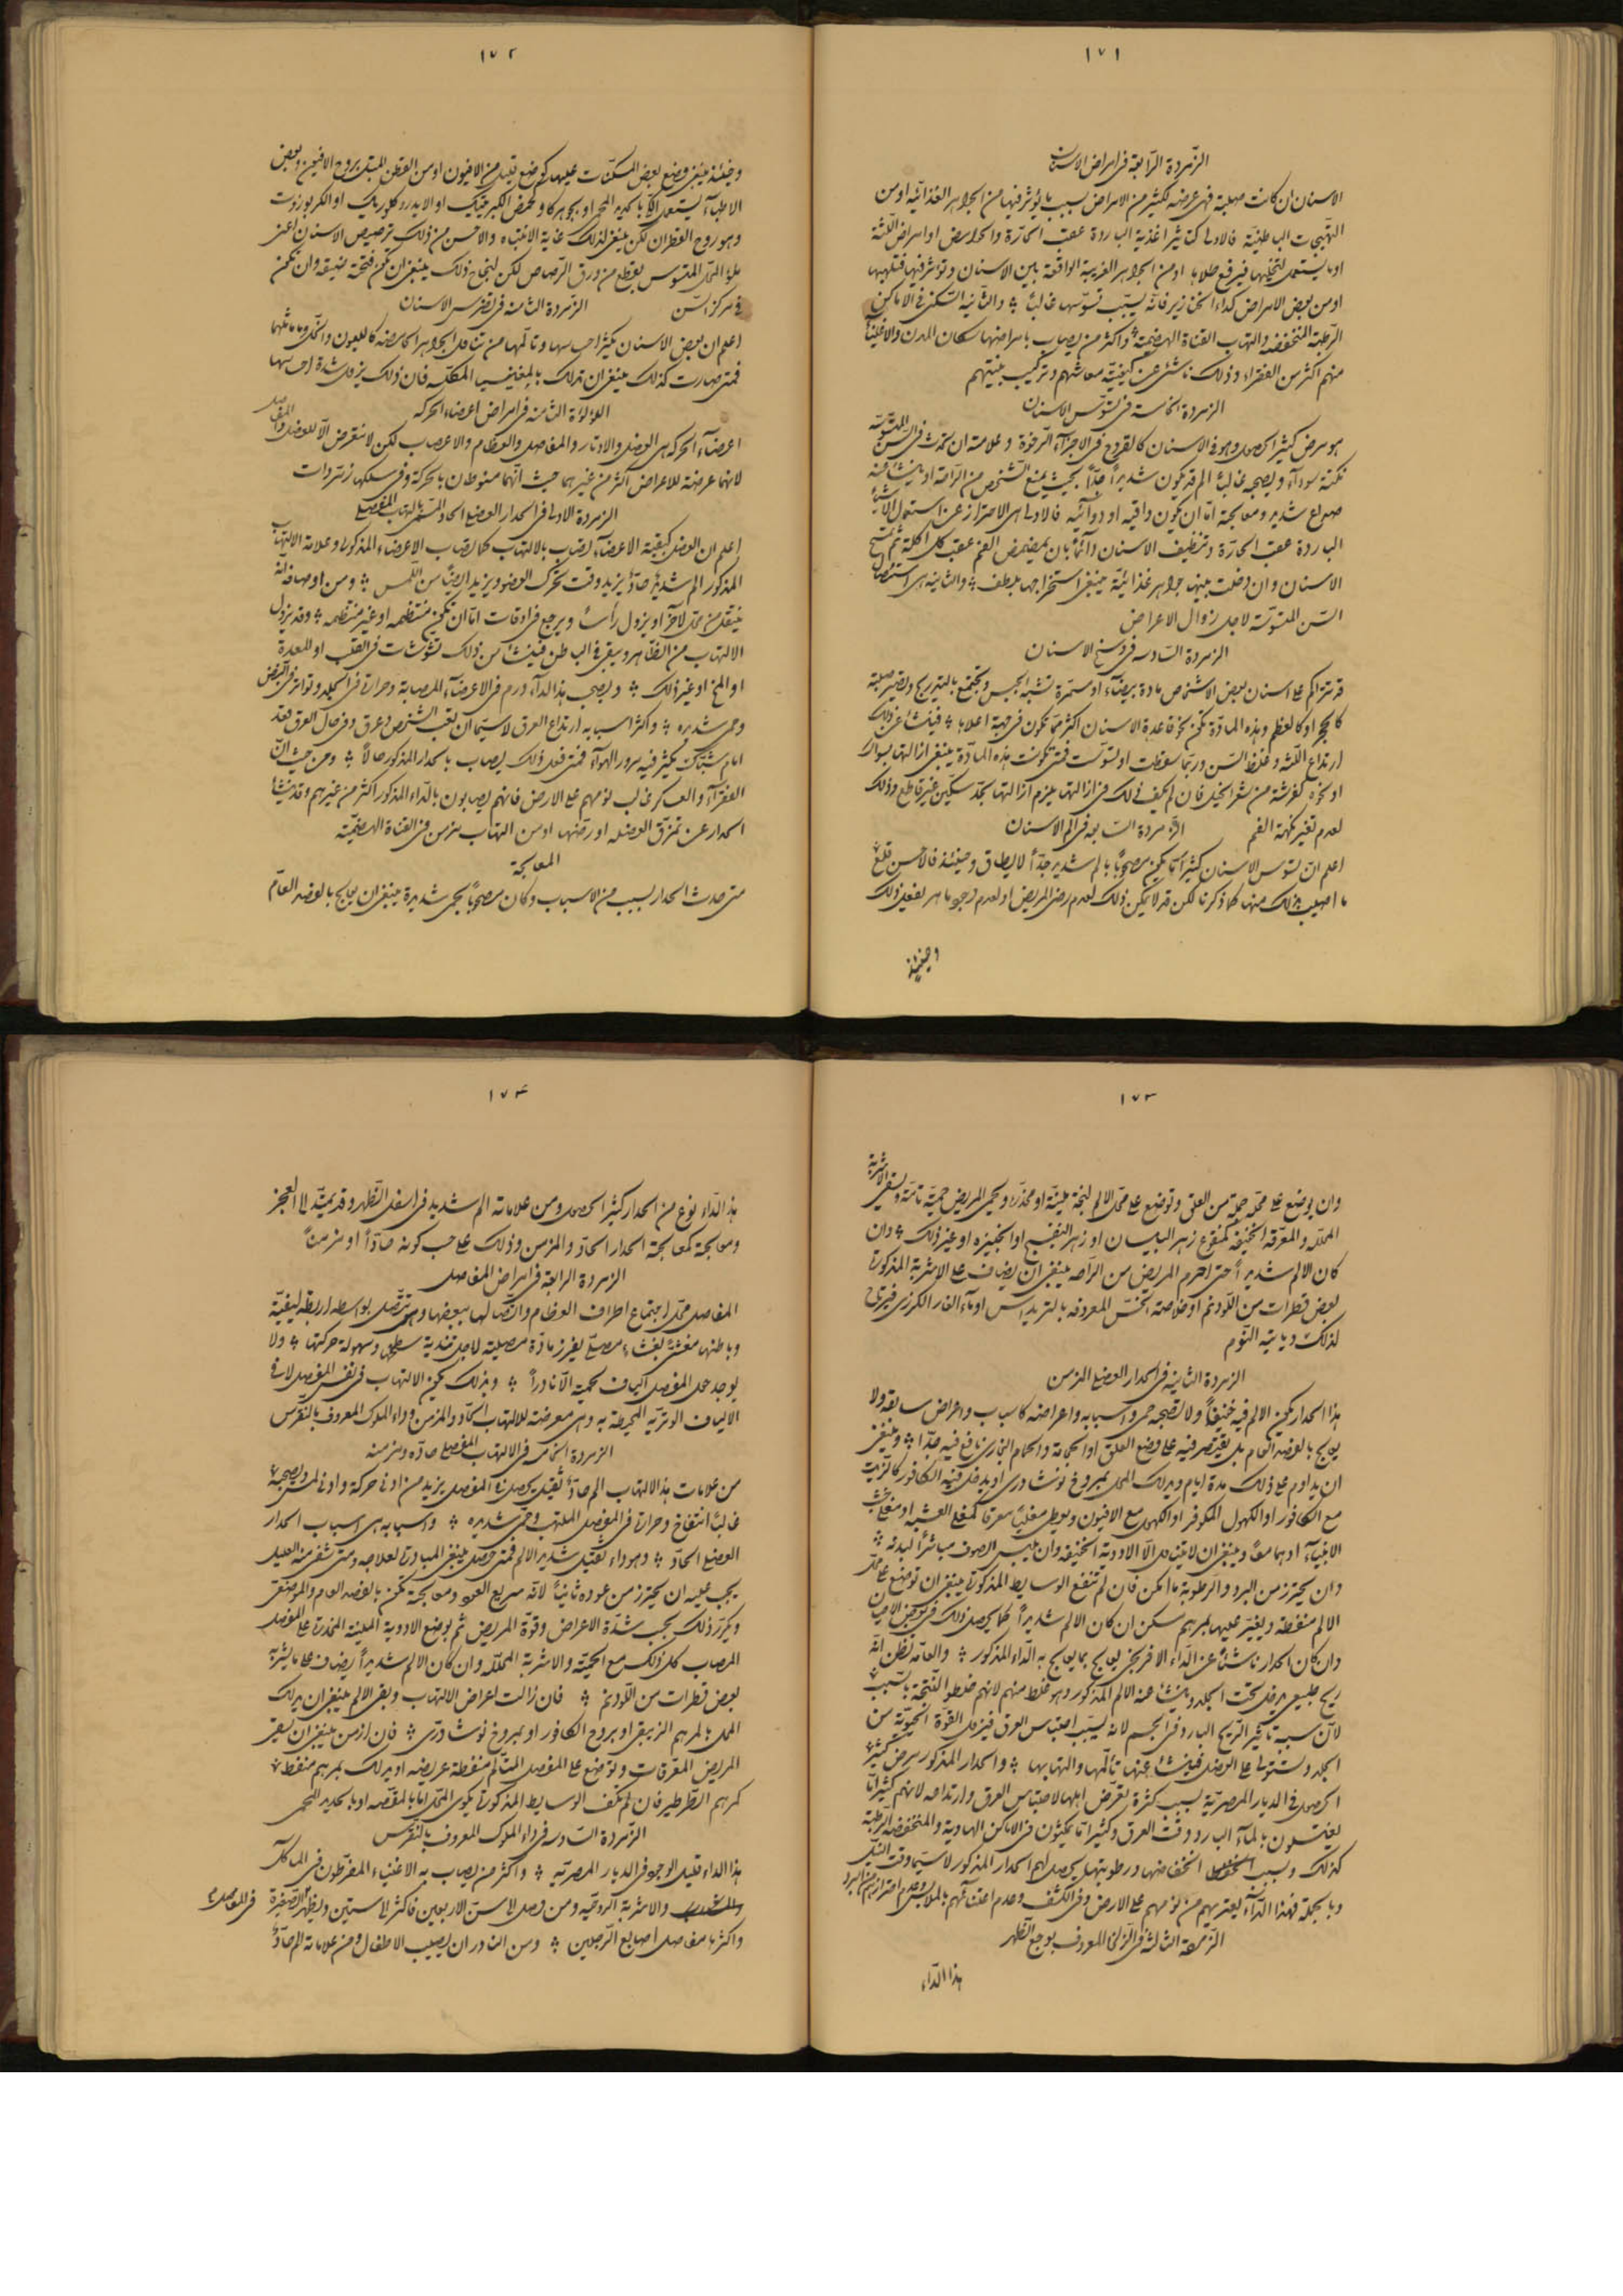 ١٧١
الزمردة الرابعة فى امراض الاسنان
الاسنان ان كانت صلبة فهى عرضة لكثير من الامراض بسبب ما يؤثر فيها من الجواهر الغذائية او من
التهيجات الباطنية فالاولى كتاثير اغذية الباردة عقب الحارة والحوامض او امراض اللثة
او ما يستعمل لتخليلها فيرفع طلاها او من الجواهر الغريبة الواقعة بين الاسنان وتؤثر فيها فتلهبها
او من بعض الامراض كداء الخنازير فانه يسبب تسوسها غالباً والثانية السكنى فى الاماكن
الرطبة المنخفضة والتهاب القناة الهضمية واكثر من يصاب بامراضها سكان المدن والاغنياء
منهم اكثر من الفقراء وذلك ناشئ عن كيفية معاشهم وتركيب بنيتهم
الزمردة الخامسة فى تسوس الاسنان
هو مرض كثير الحصول وهو فى الاسنان كالقروح فى الاجزاء الرخوة وعلامته ان تحدث فى السن المتسوسة
نكتة سوداء ويصحبه غالباً الم قد يكون شديداً جداً بحيث يمنع الشخص من الراحة او ينشأ عنه
صداع شديد ومعالجته اما ان تكون واقية او دوائية فالاولى هى الاحتراز عن استعمال الاشياء
الباردة عقب الحارة وتنظيف الاسنان دائماً بان يمضمض الفم عقب كل اكلة ثم تمسح
الاسنان وان دخلت بينها جواهر غذائية ينبغى استخراجها بلطف والثانية هى استئصال
السن المتسوسة لاجل زوال الاعراض
الزمردة السادسة فى وسخ الاسنان
قد تتراكم على اسنان بعض الاشخاص مادة بيضاء او سمرة تشبه الجبس وتجتمع بالتدريج وتصير صلبة
كالحجر او كالعظم وهذه المادة تكون نحو قاعدة الاسنان اكثر مما تكون فى جهة اعلاها فينشأ عن ذلك
ارتداع اللثة وغلظ السن وربما سقطت او تسوست فمتى تكونت هذه المادة ينبغى ازالتها بسواك
او نحوه كفرشة من شعر الخيل فان لم يكف ذلك فى ازالتها يلزم ازالتها بحد سكين غير قاطع وذلك
لعدم تغير نكهة الفم الزمردة السابعة فى الم الاسنان
اعلم ان تسوس الاسنان كثيراً ما يكون مصحوباً بالم شديد جداً لا يطاق وحينئذ فالاحسن قلع
ما اصيب بذلك منها كما ذكرنا لكن قد لا يمكن ذلك لعدم رضى المريض او لعدم وجود ماهر يفعل ذلك
وحينئذ
١٧٢
وحينئذ ينبغى وضع بعض المسكنات عليها كوضع قليل من الافيون او من القطن المبتل بروح الافيون وبعض
الاطباء يستعمل الكى بالحديد المحمى او بجوهر كاو كحمض الكبريتيك او الايدروكلوريك او الكريوزوت
وهو روح القطران لكن ينبغى لذلك غاية الانتباه والاحسن من ذلك ترصيص الاسنان اعنى
ملؤ المحل المتسوس بقطع من ورق الرصاص لكن لنجاح ذلك ينبغى ان تكون فتحته ضيقة وان تكون
فى مركز السن الزمردة الثامنة فى تضرس الاسنان
اعلم ان بعض الاسنان يكثر احساسها وتألمها من تناول الجواهر الحامضة كالليمون والخل وما ماثلهما
فمتى صارت كذلك ينبغى ان تدلك بالمغنيسيا المكلسة فان ذلك يزيل شدة احساسها
اللؤلؤة الثامنة فى امراض اعضاء الحركة
اعضاء الحركة هى العضل والاوتار والمفاصل والعظام والاعصاب لكن لا نتعرض الا للعضل والمفاصل
لانهما عرضة للاعراض اكثر من غيرهما حيث انهما منوطان بالحركة وفى سلكها زمردات
الزمردة الاولى فى الحدار العضلى الحاد المسمى بالتهاب العضلى
اعلم ان العضل كبقية الاعضاء يصاب بالالتهاب كما تصاب الاعضاء المذكورة وعلامة الالتهاب
المذكور الم شديد حاد يزيد وقت تحرك العضو ويزيد ايضاً من اللمس ومن اوصافه انه
ينتقل من محل لآخر او يزول رأساً ويرجع فى اوقات اما ان تكون منتظمة او غير منتظمة وقد يزول
الالتهاب من الظاهر ويبقى فى الباطن فينشأ من ذلك تشوشات فى القلب او المعدة
او المخ او غير ذلك ويصحب هذا الداء ورم فى الاعضاء المصابة وحرارة فى الجلد وتواتر فى النبض
وحمى شديدة واكثر اسبابه ارتداع العرق لاسيما ان تعب الشخص وعرق وفى حال العرق قعد
امام شباك يكثر فيه مرور الهواء فمتى فعل ذلك يصاب بالحدار المذكور حالاً ومن حيث ان
الفقراء والعساكر غالب نومهم على الارض فانهم يصابون بالداء المذكور اكثر من غيرهم وقد ينشأ
الحدار عن تمزق العضل او رضها او من التهاب مزمن فى القناة الهضمية
المعالجة
متى حدث الحدار بسبب من الاسباب وكان مصحوباً بحمى شديدة ينبغى ان يعالج بالفصد العام
١٧٣
وان يوضع على محله جملة من العلق وتوضع على محل الالم لبخة ملينة او مخدرة ويحمى المريض حمية تامة ويسقى الاشربة
المحللة والمعرقة الخفيفة كمنقوع زهر البيلسان او زهر البنفسج او الخبيزة او غير ذلك وان
كان الالم شديداً حتى احرم المريض من الراحة ينبغى ان يضاف على الاشربة المذكورة
بعض قطرات من اللودنم او خلاصة الخس المعروفة بالتريداس او ماء الغار الكرزى فيرتاح
لذلك وياتيه النوم
الزمردة الثانية فى الحدار العضلى المزمن
هذا الحدار يكون الالم فيه خفيفاً ولا تصحبه حمى واسبابه واعراضه كاسباب واعراض سابقه ولا
يعالج بالفصد العام بل يقتصر فيه على وضع العلق او الحجامة والحمام البخارى نافع فيه جداً وينبغى
ان يداوم على ذلك مدة ايام ويدلك المحل بمروخ نوشادرى او يدخل فيه الكافور كالزيت
مع الكافور او الكهول المكوفر او الكهول مع الافيون ويعطى مغلياً معرقاً كمغلى العشبة او مغلى خشب
الانبياء او هما معاً وينبغى ان لا يتناول الا الاودية الخفيفة وان يلبس الصوف مباشراً لبدنه
وان يحترز من البرد والرطوبة ما امكن فان لم تنفع الوسايط المذكورة ينبغى ان توضع على محل
الالم منفطة ويغير عليها بمرهم مسكن ان كان الالم شديداً كما يحصل ذلك فى بعض الاحيان
وان كان الحدار ناشئاً عن الداء الافرنجى يعالج بما يعالج به الداء المذكور والعامة تظن انه
ريح طبيعى يدخل تحت الجلد وينشأ عنه الالم المذكور وهو غلط منهم لانهم خلطوا النتيجة بالسبب
لان سببه تاثير الريح البارد فى الجسم لانه يسبب احتباس العرق فيزيل القوة الحيوية من
الجلد وتستولى على العضل فينشأ عنها تألمها والتهابها والحدار المذكور مرض كثير
الحصول فى الديار المصرية بسبب كثرة تعرض اهلها لاحتباس العرق وارتداعه لانهم كثيراً ما
يغتسلون بالماء البارد وقت العرق وكثيراً ما يمكثون فى الاماكن الهاوية والمنخفضة الرطبة
كذلك وبسبب انخفاضها ورطوبتها يحصل لهم الحدار المذكور لاسيما وقت النيل
وبالجملة فهذا الداء يعتريهم من نومهم على الارض وفى الكشف وعدم اعتنائهم بالملابس وعدم احترازهم من البرد
الزمردة الثالثة فى الزلخة المعروف بوجع الظهر
هذا الداء
١٧٤
هذا الداء نوع من الحدار كثير الحصول ومن علاماته الم شديد فى اسفل الظهر وقد يمتد الى العجز
ومعالجته كمعالجة الحدار الحاد والمزمن وذلك على حسب كونه حاداً او مزمناً
الزمردة الرابعة فى امراض المفاصل
المفاصل محل اجتماع اطراف العظام واتصالها ببعضها وهى تتصل بواسطة اربطة ليفية
وباطنها مغشى بغشاء مصلى يفرز مادة مصلية لاجل تندية سطحه وسهولة حركتها ولا
يوجد حول المفصل الياف لحمية الا نادراً وبذلك يكون الالتهاب فى نفس المفصل لا فى
الالياف الوترية المحيطة به وهى معرضة للالتهاب الحاد والمزمن وداء الملوك المعروف بالنقرس
الزمردة الخامسة فى الالتهاب المفصلى حاده ومزمنه
من علامات هذا الالتهاب الم حاد ثقيل يحصل فى المفصل يزيد من ادنى حركة وادنى لمس ويصحبه
غالباً انتفاخ وحرارة فى المفصل الملتهب وحمى شديدة واسبابه هى اسباب الحدار
العضلى الحاد وهو داء ثقيل شديد الالم فمتى حصل ينبغى المبادرة لعلاجه ومتى شفى منه العليل
يجب عليه ان يحترز من عوده ثانياً لانه سريع العود ومعالجته تكون بالفصد العام والموضعى
ويكرر ذلك بحسب شدة الاعراض وقوة المريض ثم بوضع الادوية الملينة المخدرة على المفصل
المصاب كل ذلك مع الحمية والاشربة المحللة وان كان الالم شديداً يضاف على ما يشربه
بعض قطرات من اللودنم فان زالت اعراض الالتهاب وبقى الالم ينبغى ان يدلك
المحل بالمرهم الزيبقى او بروح الكافور او بمروخ نوشادرى فان ازمن ينبغى ان يسقى
المريض المعرقات وتوضع على المفصل المتألم منفطة عريضة او يدلك بمرهم منفط
كمرهم الطرطير فان لم تكف الوسايط المذكورة يكوى المحل اما بالمقصة او بالحديد المحمى
الزمردة السادسة فى داء الملوك المعروف بالنقرس
هذا الداء قليل الوجود فى الديار المصرية واكثر من يصاب به الاغنياء المفرطون فى المآكل
والاشربة الروحية ومن وصل الى سن الاربعين فاكثر الى ستين ويظهر فى المفاصل الصغيرة
واكثرها مفاصل اصابع الرجلين ومن النادر ان يصيب الاطفال ومن علاماته الم حاد